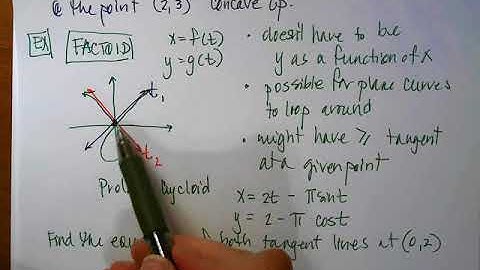 @ the point (2,3) concave up.
EX FACTOID x=f(t)
y=g(t)
• doesn't have to be
y as a function of x
• possible for plane curves
to loop around
• might have ≥ tangent
at a given point
t₁
t₂
x = 2t - πsint
y = 2 - π cost
Find the both tangent lines at (0,2).